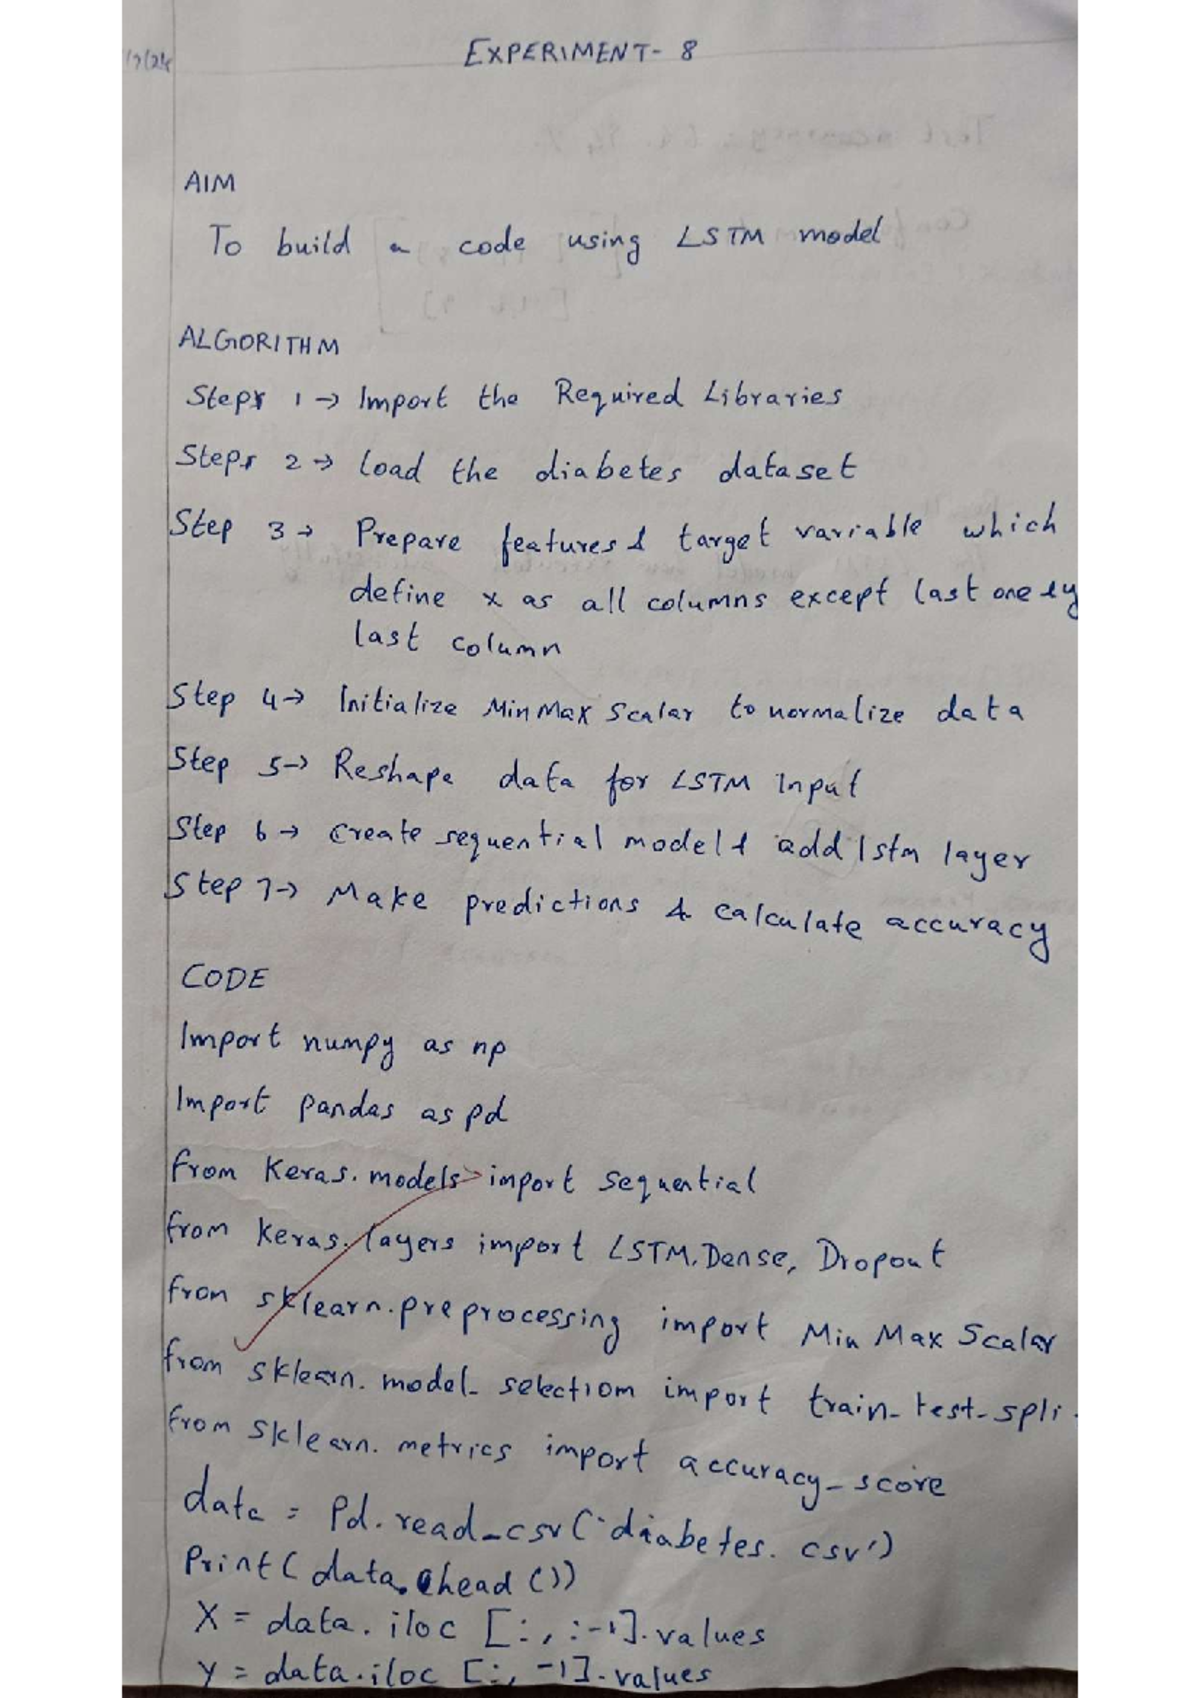 EXPERIMENT- 8
AIM
To build a code using LSTM model
ALGORITHM
Steps 1 → Import the Required Libraries
Steps 2 → Load the diabetes dataset
Step 3 → Prepare features & target variable which
define x as all columns except last one & y
last column
Step 4 → Initialize MinMax Scalar to normalize data
Step 5 → Reshape data for LSTM Input
Step 6 → Create sequential model & add lstm layer
Step 7 → Make predictions & calculate accuracy
CODE
Import numpy as np
Import pandas as pd
from Keras.models import sequential
from keras.layers import LSTM, Dense, Dropout
from sklearn.preprocessing import Min Max Scalar
from sklearn.model_selection import train_test_spli
from sklearn.metrics import accuracy_score
data = Pd.read_csv('diabetes.csv')
Print(data.head())
X = data.iloc [:, :-1].values
y = data.iloc [:, -1].values